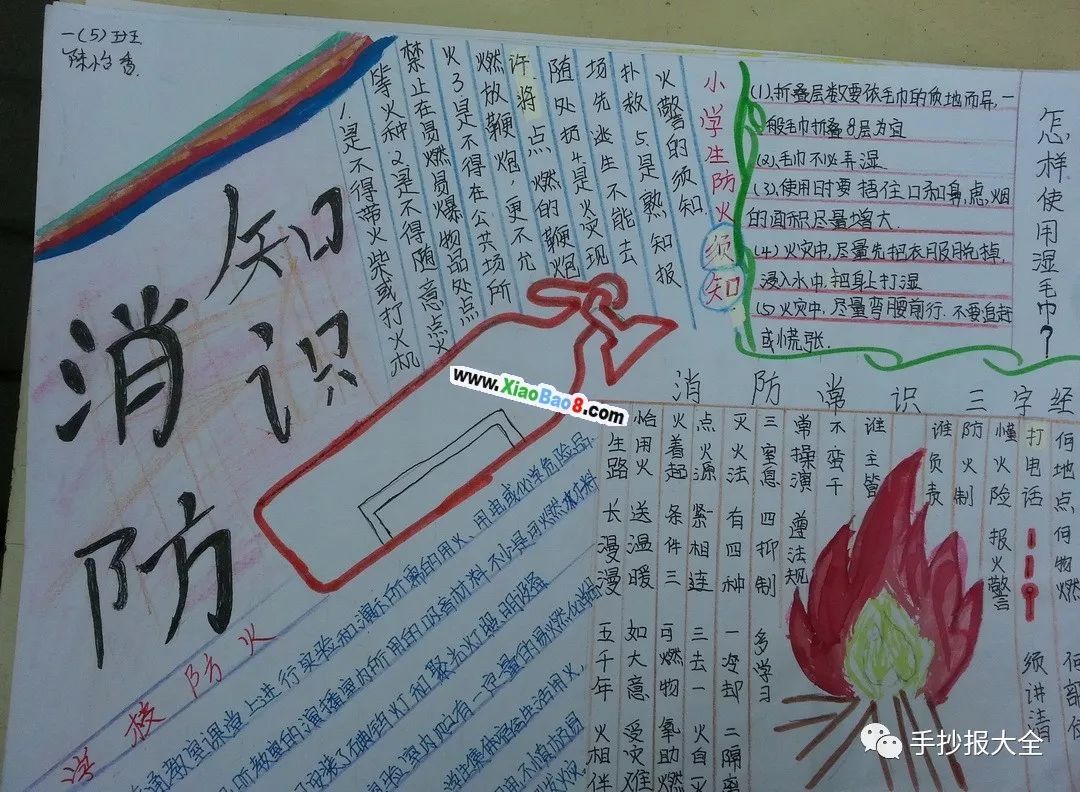 一(5)班
消防
知识
小学生防火须知
火警的须知
扑救5.是熟知报
场先逃生不能去
随处扔4.是火灾现
许将点燃的鞭炮
燃放鞭炮,更不允
火3是不得在公共场所
禁止在易燃易爆物品处点
等火种2.是不得随意点
1.是不得带火柴或打火机
怎样使用湿毛巾?
(1).折叠层数要依毛巾的质地而异,一
般毛巾折叠8层为宜
(2).毛巾不必弄湿
(3).使用时要捂住口和鼻,
的面积尽量增大.
(4)火灾中,尽量先把衣服脱掉,
浸入水中,把身上打湿
(5火灾中,尽量弯腰前行.不要追赶
或慌张.
消防常识三字经
何地点 何物燃 何部位
打电话 119 须讲清
懂火险 报火警
防火制
谁负责
谁主管
不蛮干
常操演 遵法规
三室息 四抑制 多学习
灭火法 有四种 一冷却 二隔离
点火源 紧相连 三去一 火自灭
火着起 条件三 可燃物 氧助燃
怡用火 送温暖 如大意 受灾难
生路长漫漫 五千年 火相伴
学校防火
课堂上进行实验和演示所需的用火、用电或化学危险品.
演播室内所用的吸音材料不少是可燃材料
安装了碘钨灯和聚光灯照明设备
验室内贮有一定量的易燃化学物
www.XiaoBao8.com
手抄报大全